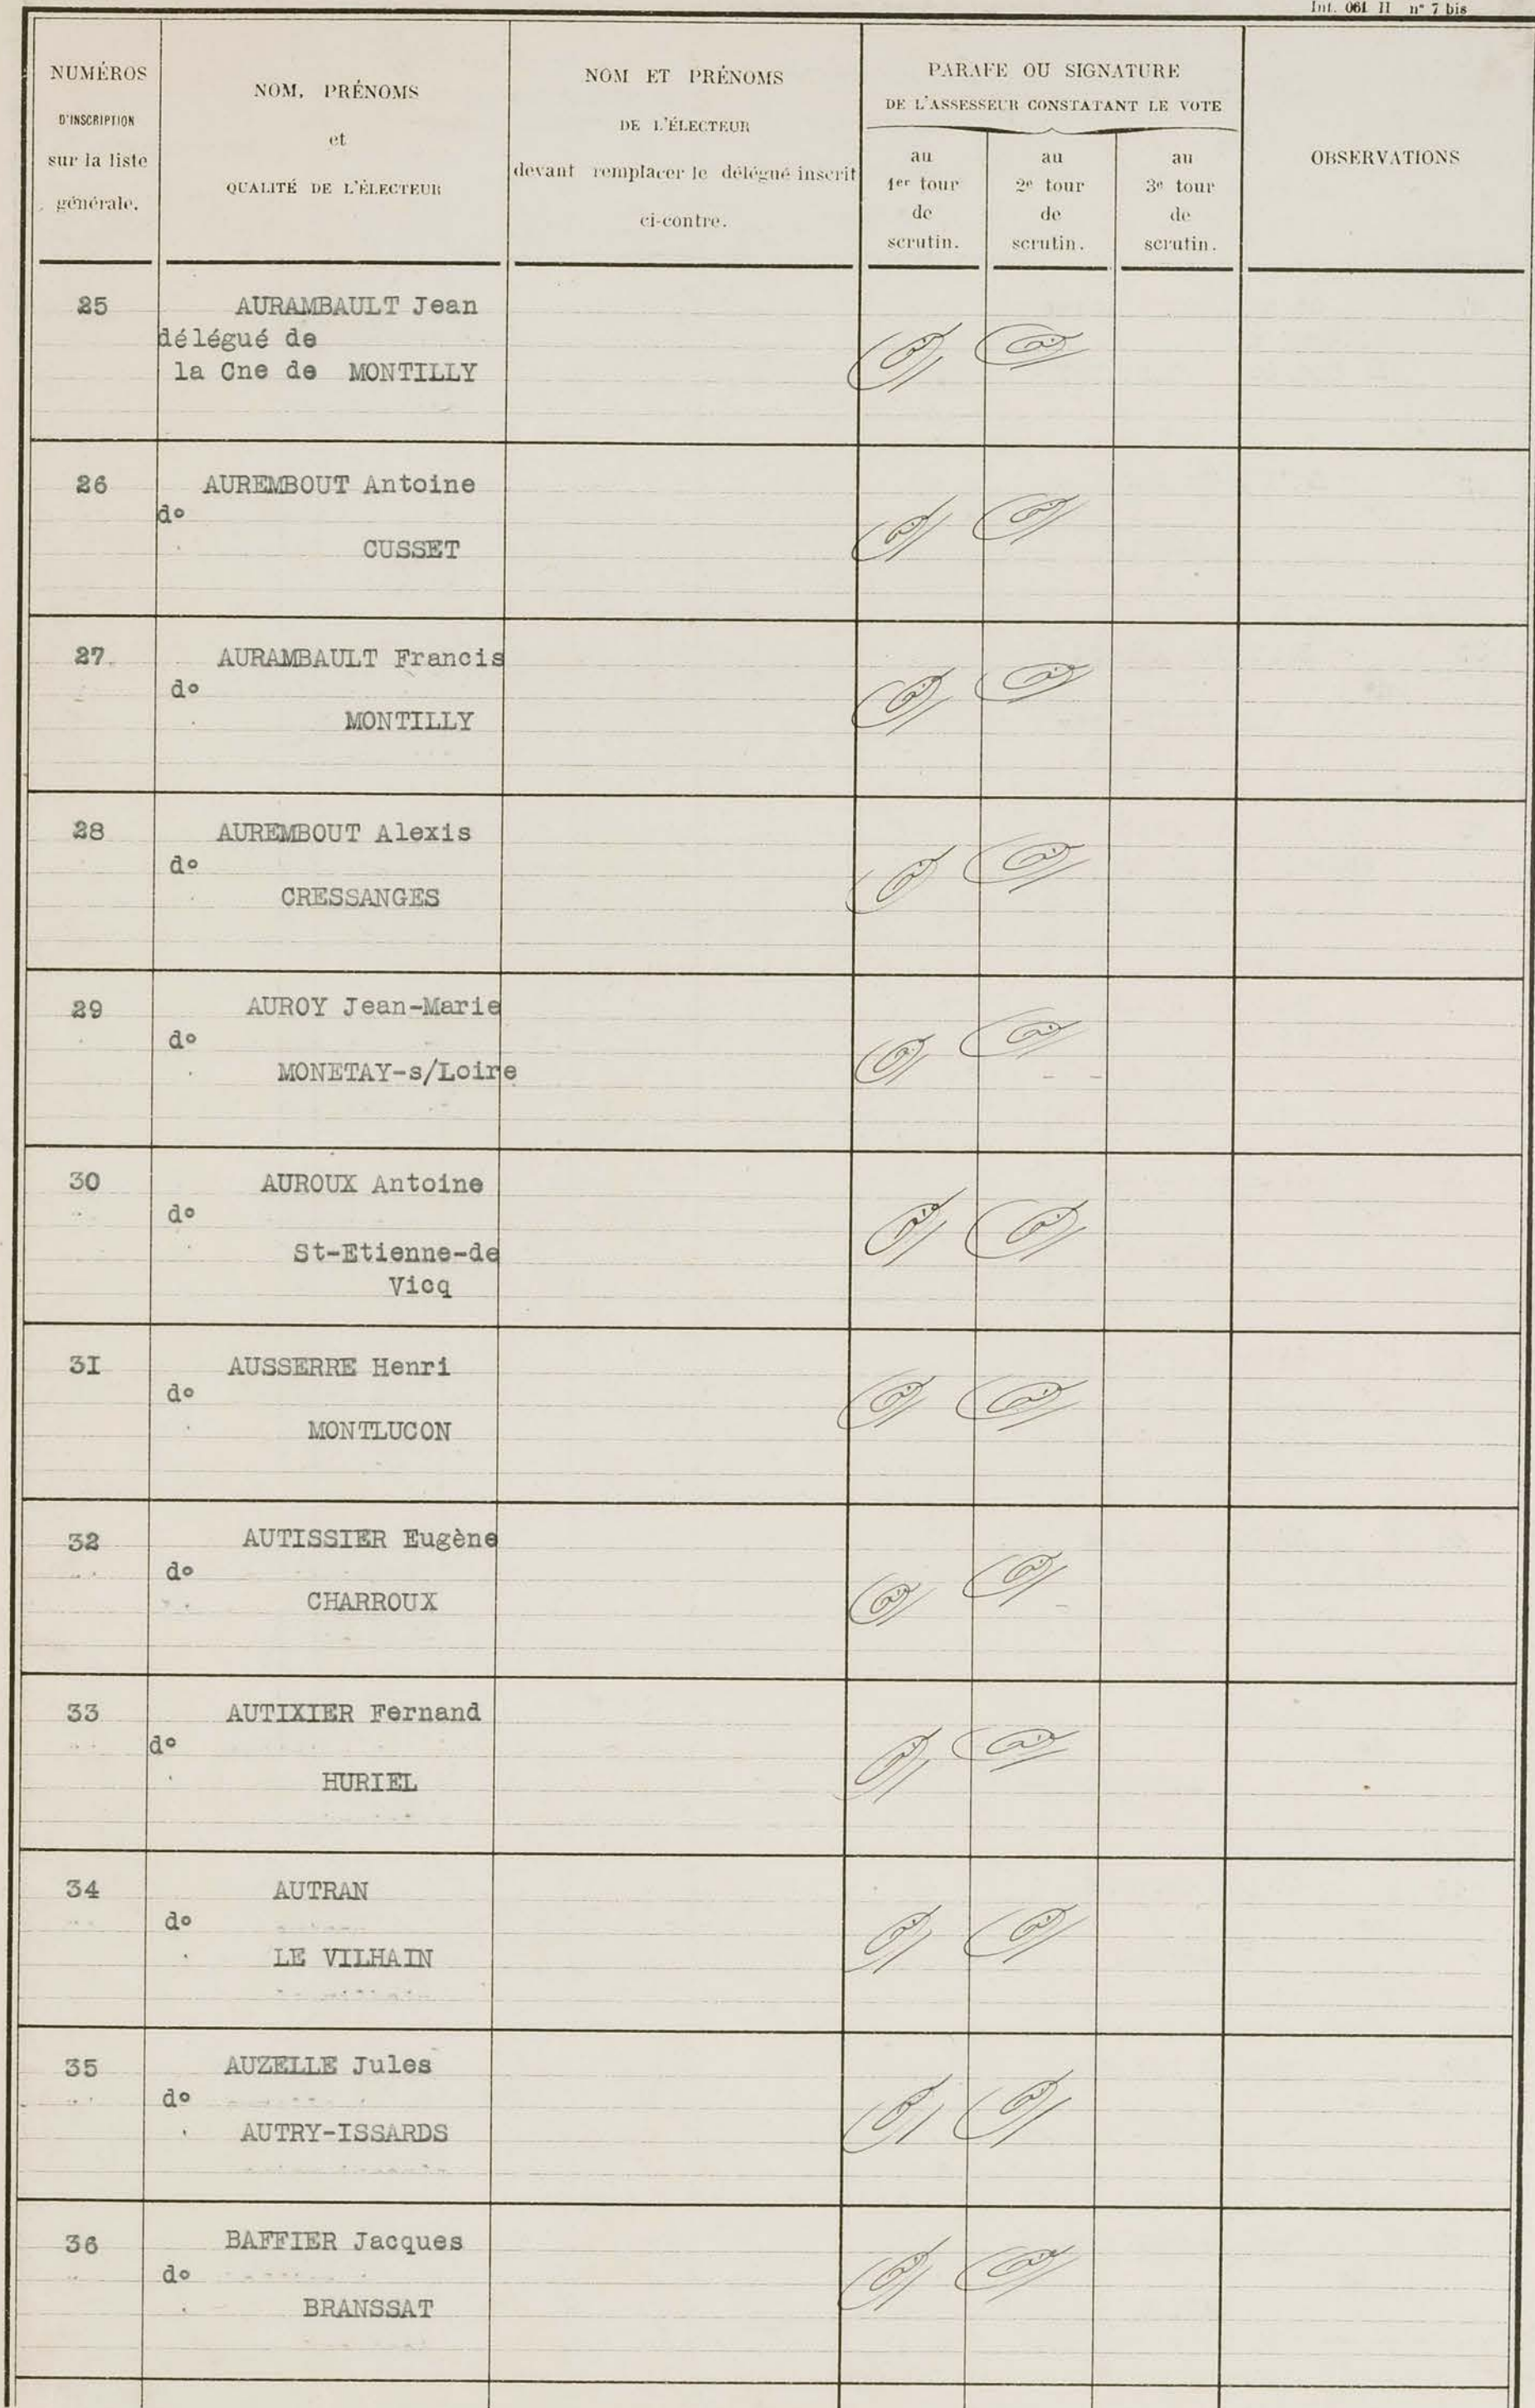 Int. 061 II n° 7 bis
NUMÉROS
D'INSCRIPTION
sur la liste
générale.
NOM, PRÉNOMS
et
QUALITÉ DE L'ÉLECTEUR
NOM ET PRÉNOMS
DE L'ÉLECTEUR
devant remplacer le délégué inscrit
ci-contre.
PARAFE OU SIGNATURE
DE L'ASSESSEUR CONSTATANT LE VOTE
au
1er tour
de
scrutin.
au
2e tour
de
scrutin.
au
3e tour
de
scrutin.
OBSERVATIONS
25 AURAMBAULT Jean
délégué de
la Cne de MONTILLY
26 AUREMBOUT Antoine
d°
CUSSET
27 AURAMBAULT Francis
d°
MONTILLY
28 AUREMBOUT Alexis
d°
CRESSANGES
29 AUROY Jean-Marie
d°
MONETAY-s/Loire
30 AUROUX Antoine
d°
St-Etienne-de
Vicq
3I AUSSERRE Henri
d°
MONTLUCON
32 AUTISSIER Eugène
d°
CHARROUX
33 AUTIXIER Fernand
d°
HURIEL
34 AUTRAN
d°
LE VILHAIN
35 AUZELLE Jules
d°
AUTRY-ISSARDS
36 BAFFIER Jacques
d°
BRANSSAT